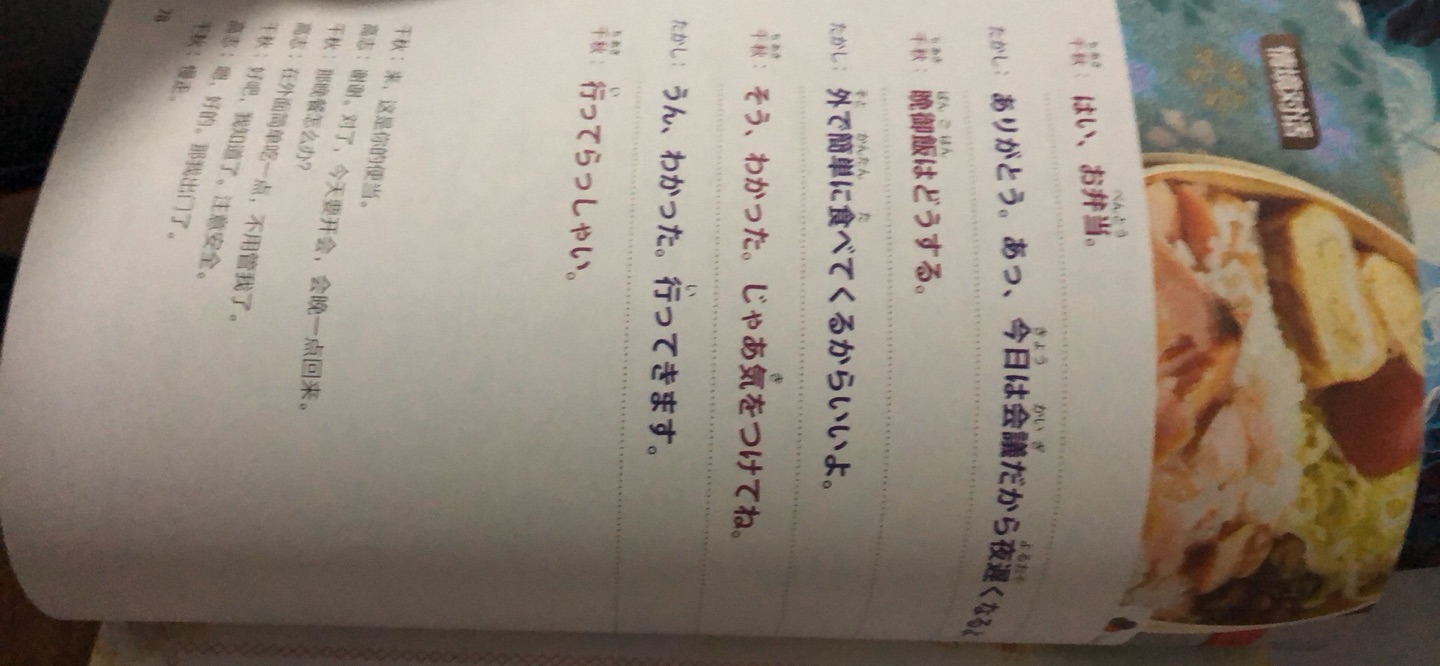 情境对话
千秋：はい、お弁当。
たかし：ありがとう。あっ、今日は会議だから夜遅くなると
千秋：晩御飯はどうする。
たかし：外で簡単に食べてくるからいいよ。
千秋：そう、わかった。じゃあ気をつけてね。
たかし：うん、わかった。行ってきます。
千秋：行ってらっしゃい。
千秋：来，这是你的便当。
高志：谢谢。对了，今天要开会，会晚一点回来。
千秋：那晚餐怎么办？
高志：在外面简单吃一点，不用管我了。
千秋：好吧，我知道了。注意安全。
高志：嗯，好的。那我出门了。
千秋：慢走。
78